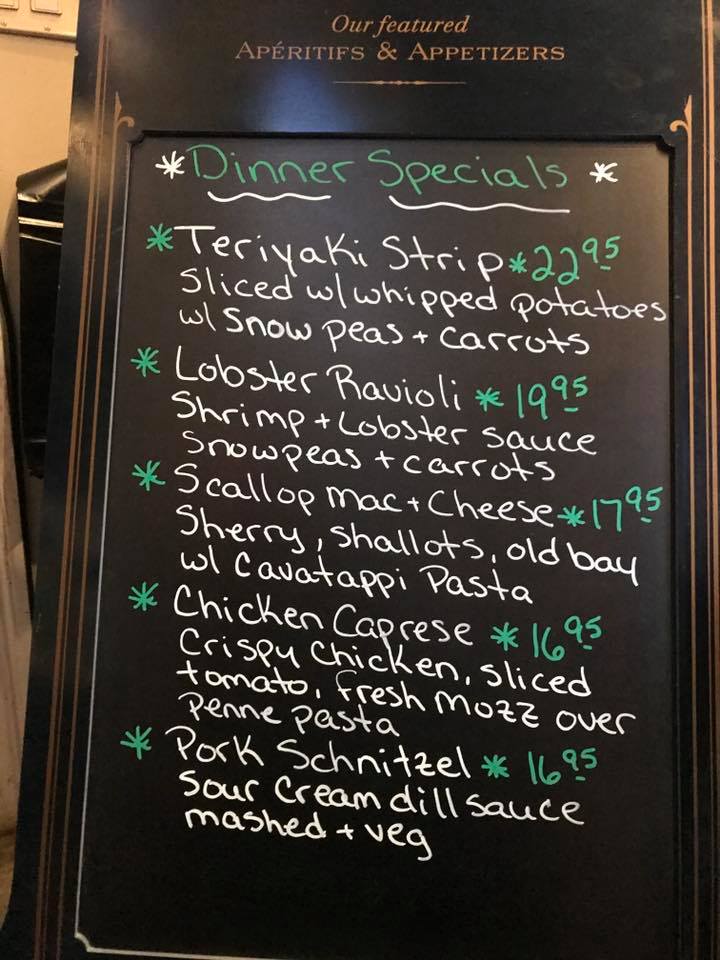 Our featured
APÉRITIFS & APPETIZERS
*Dinner Specials *
*Teriyaki Strip*22 95
Sliced w/whipped potatoes
w/ Snow peas + carrots
* Lobster Ravioli * 19 95
Shrimp + Lobster sauce
Snowpeas + carrots
* Scallop mac + Cheese*17 95
Sherry, shallots, old bay
w/ Cavatappi Pasta
* Chicken Caprese * 16 95
Crispy Chicken, sliced
tomato, fresh mozz over
penne pasta
* Pork Schnitzel * 16 95
Sour Cream dill sauce
mashed + veg